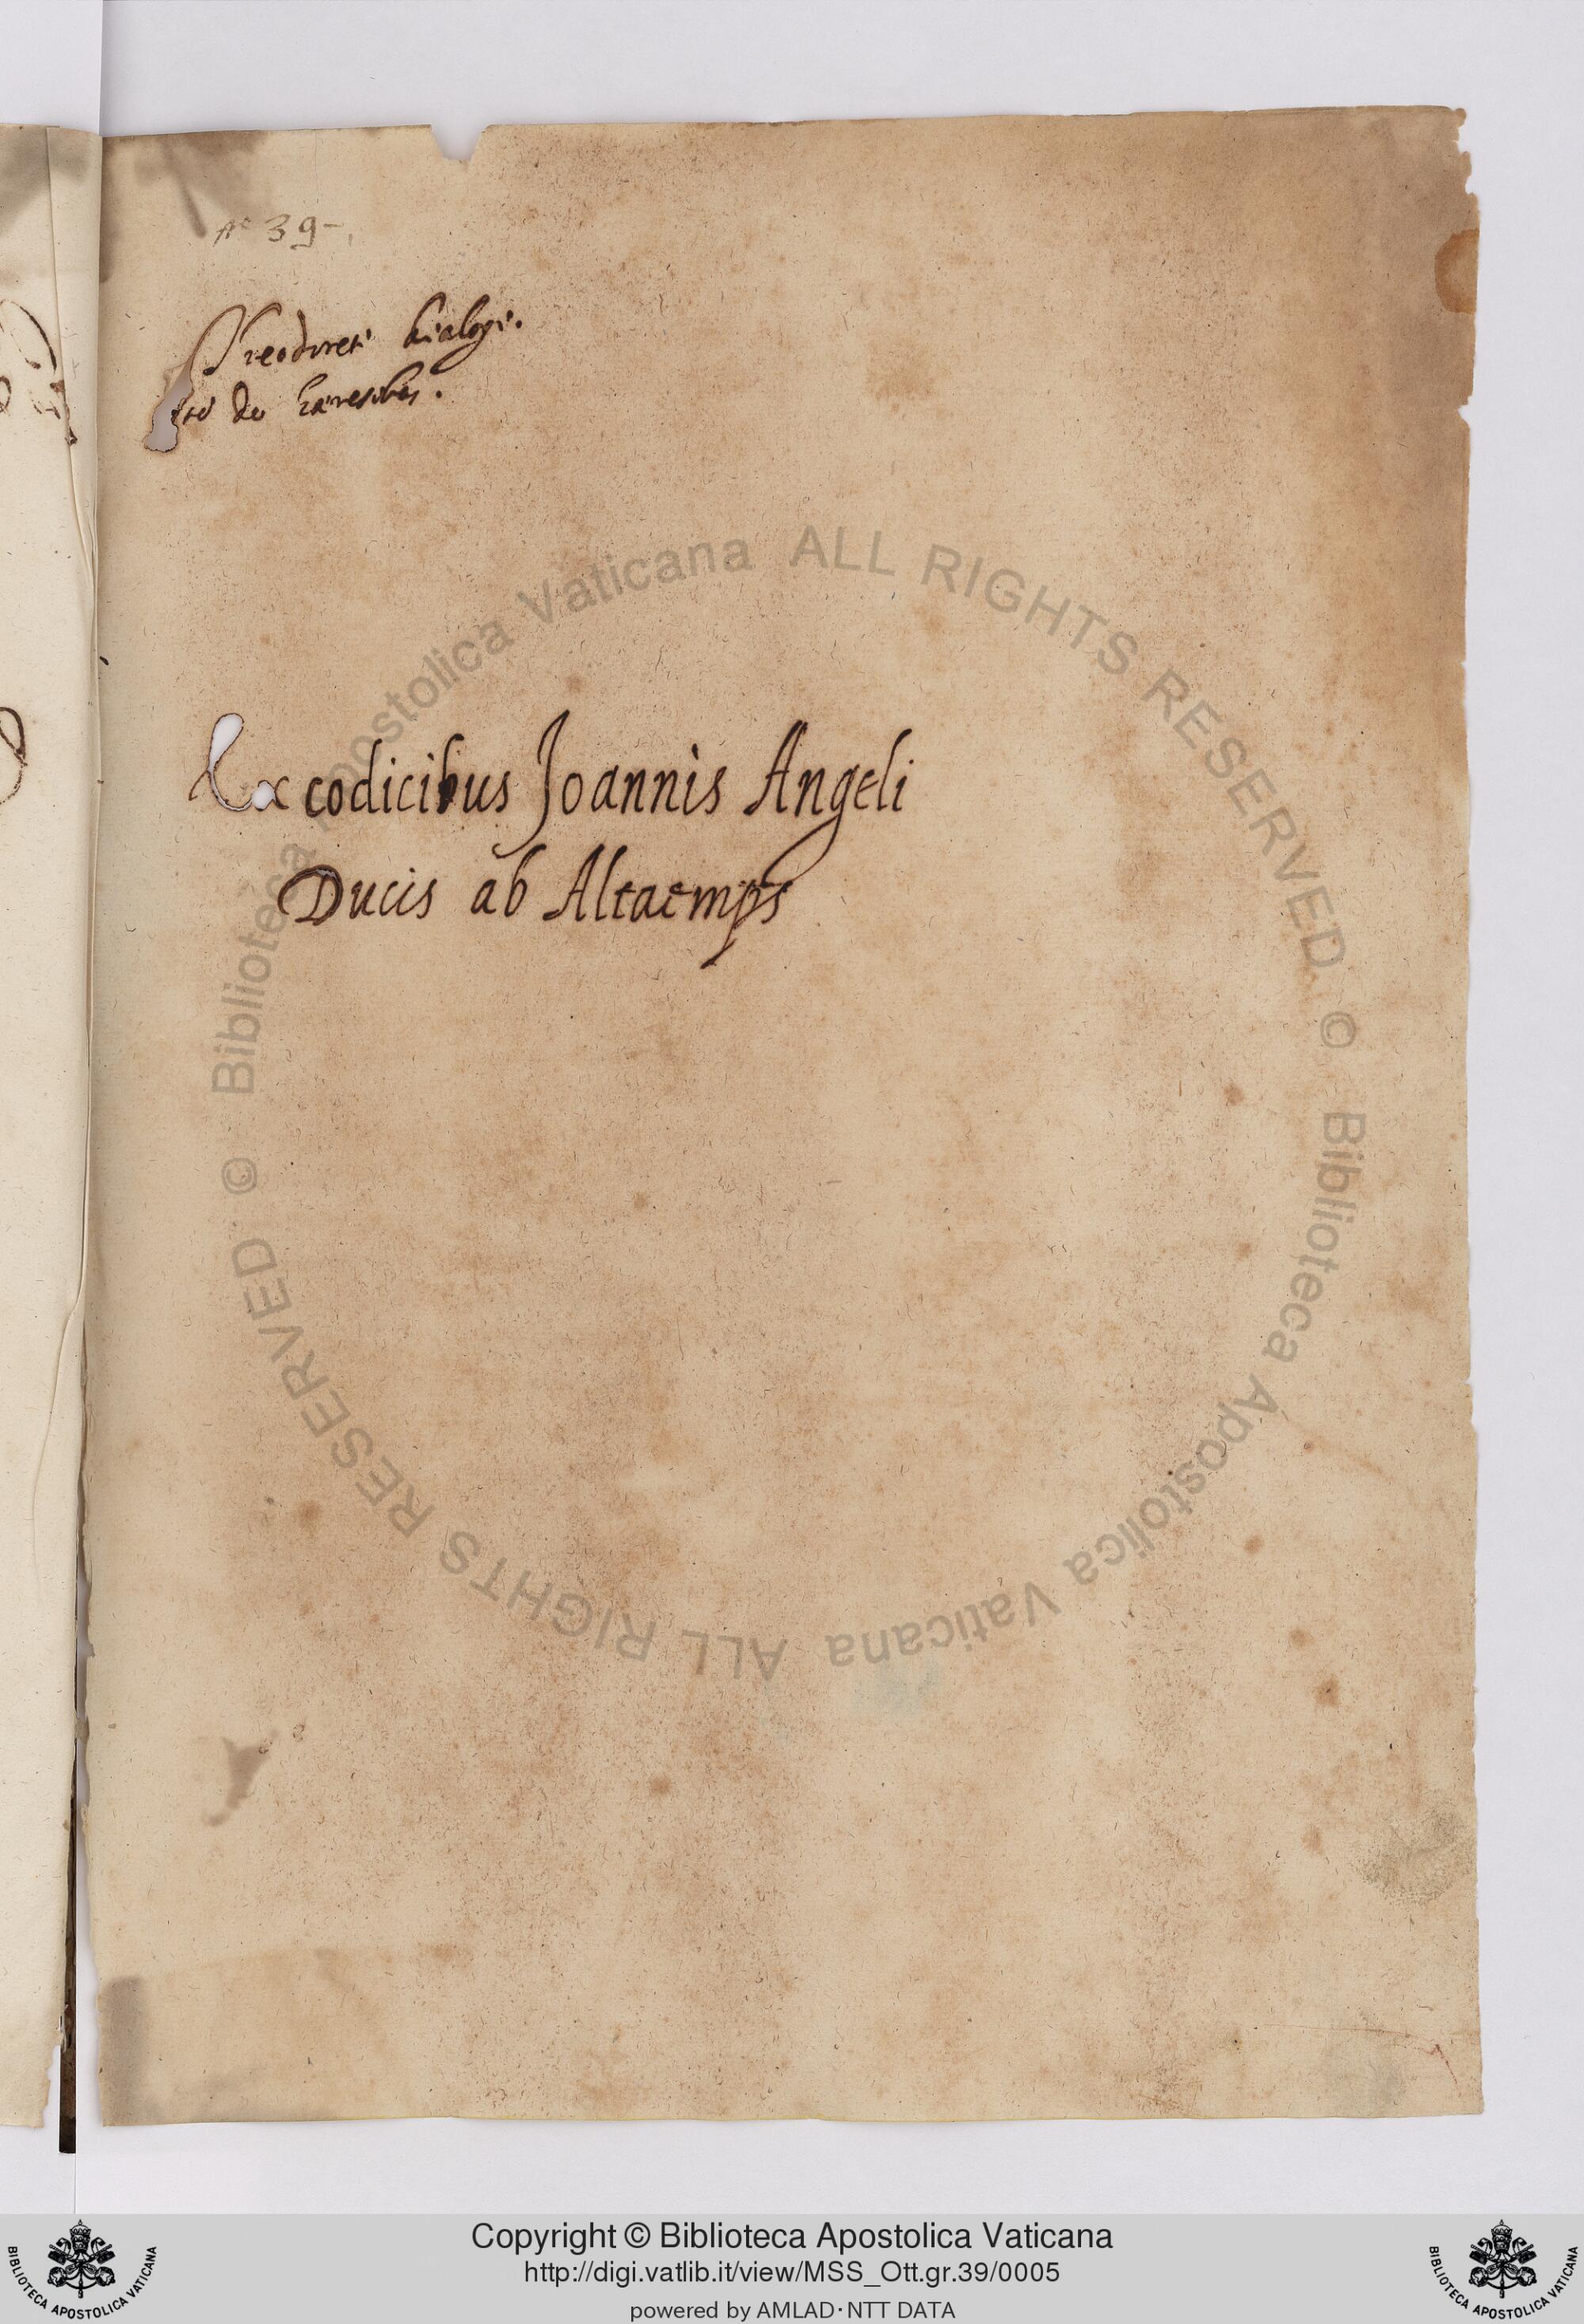 39
Theodoreti dialogi.
de haeresibus.
Ex codicibus Joannis Angeli
Ducis ab Altaemps
© Biblioteca Apostolica Vaticana ALL RIGHTS RESERVED
© Biblioteca Apostolica Vaticana ALL RIGHTS RESERVED
Copyright © Biblioteca Apostolica Vaticana
http://digi.vatlib.it/view/MSS_Ott.gr.39/0005
powered by AMLAD·NTT DATA
BIBLIOTECA APOSTOLICA VATICANA
BIBLIOTECA APOSTOLICA VATICANA